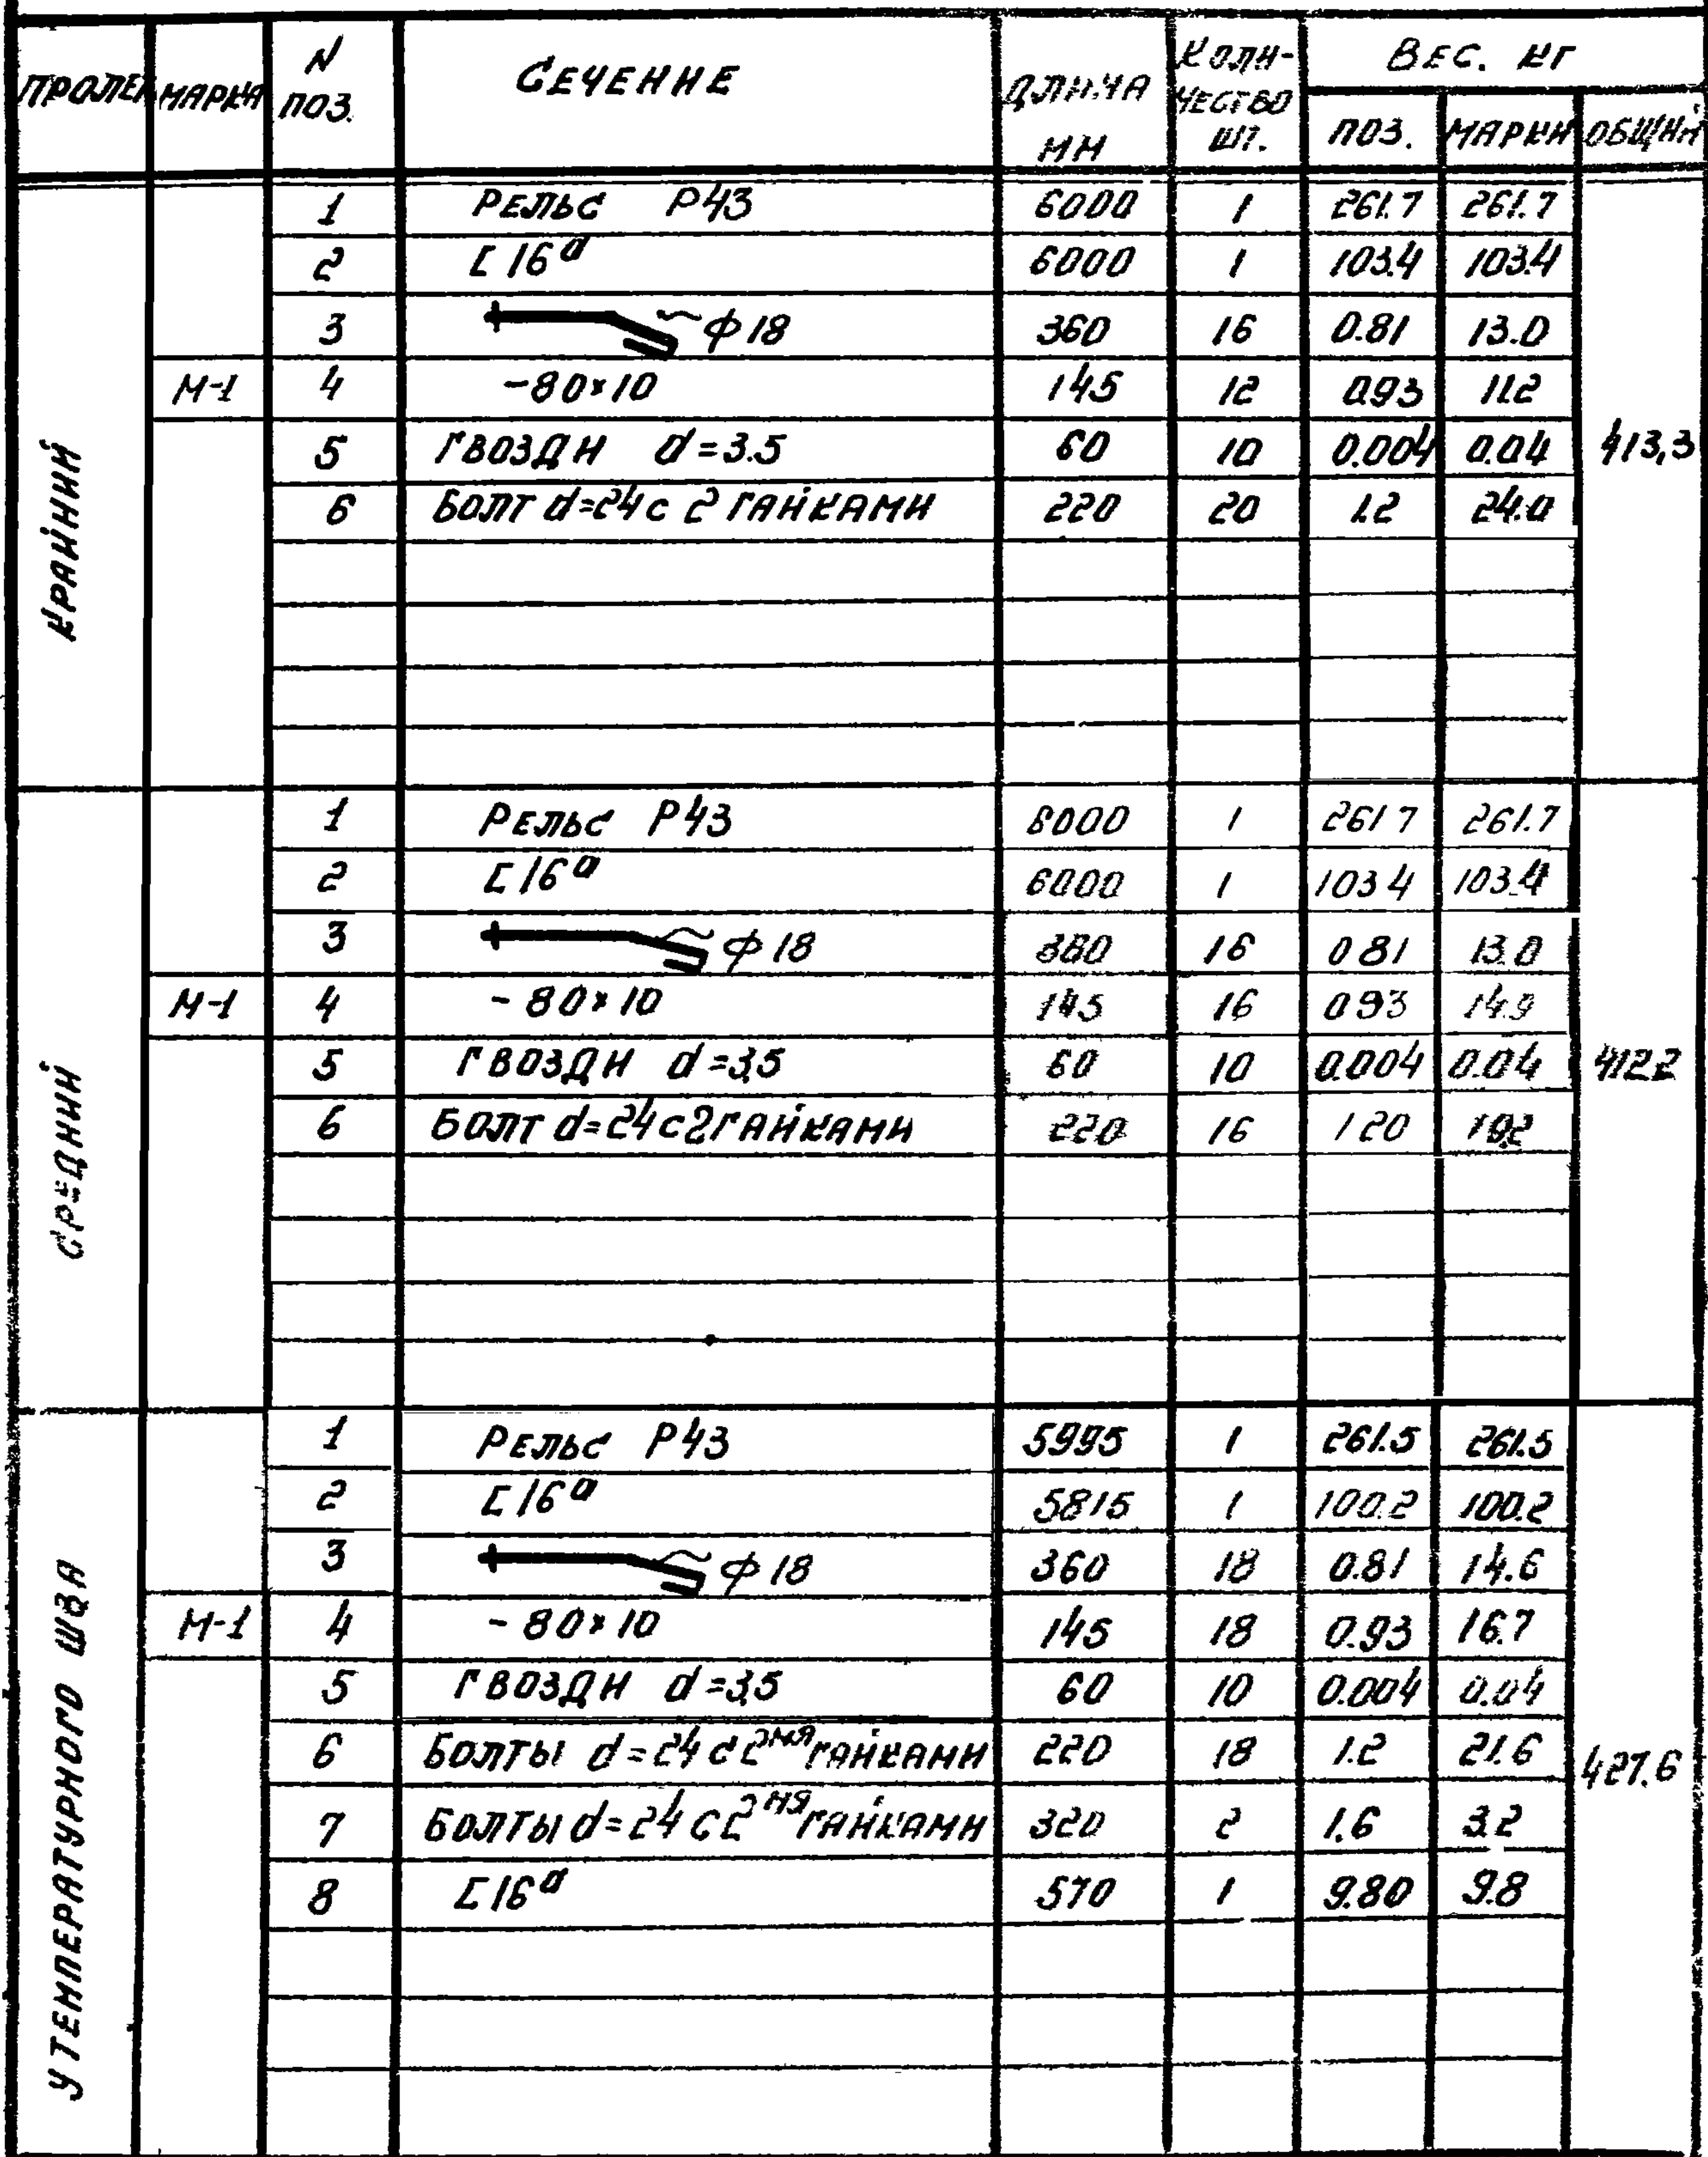 ПРОЛЕТ МАРКА N ПОЗ. СЕЧЕНИЕ ДЛИНА ММ КОЛИ-ЧЕСТВО ШТ. ВЕС. КГ
ПОЗ. МАРКИ ОБЩИЙ
КРАЙНИЙ М-1 413,3
1 РЕЛЬС Р43 6000 1 261.7 261.7
2 [16а 6000 1 103.4 103.4
3 ф18 360 16 0.81 13.0
4 -80×10 145 12 0.93 11.2
5 ГВОЗДИ d=3.5 60 10 0.004 0.04
6 БОЛТ d=24 с 2 ГАЙКАМИ 220 20 1.2 24.0
СРЕДНИЙ М-1 412.2
1 РЕЛЬС Р43 6000 1 261.7 261.7
2 [16а 6000 1 103.4 103.4
3 ф18 360 16 0.81 13.0
4 -80×10 145 16 0.93 14.9
5 ГВОЗДИ d=3,5 60 10 0.004 0.04
6 БОЛТ d=24 с 2 ГАЙКАМИ 220 16 1.20 19.2
У ТЕМПЕРАТУРНОГО ШВА М-1 427.6
1 РЕЛЬС Р43 5995 1 261.5 261.5
2 [16а 5815 1 100.2 100.2
3 ф18 360 18 0.81 14.6
4 -80×10 145 18 0.93 16.7
5 ГВОЗДИ d=3,5 60 10 0.004 0.04
6 БОЛТЫ d=24 с 2мя ГАЙКАМИ 220 18 1.2 21.6
7 БОЛТЫ d=24 с 2мя ГАЙКАМИ 320 2 1.6 3.2
8 [16а 570 1 9.80 9.8